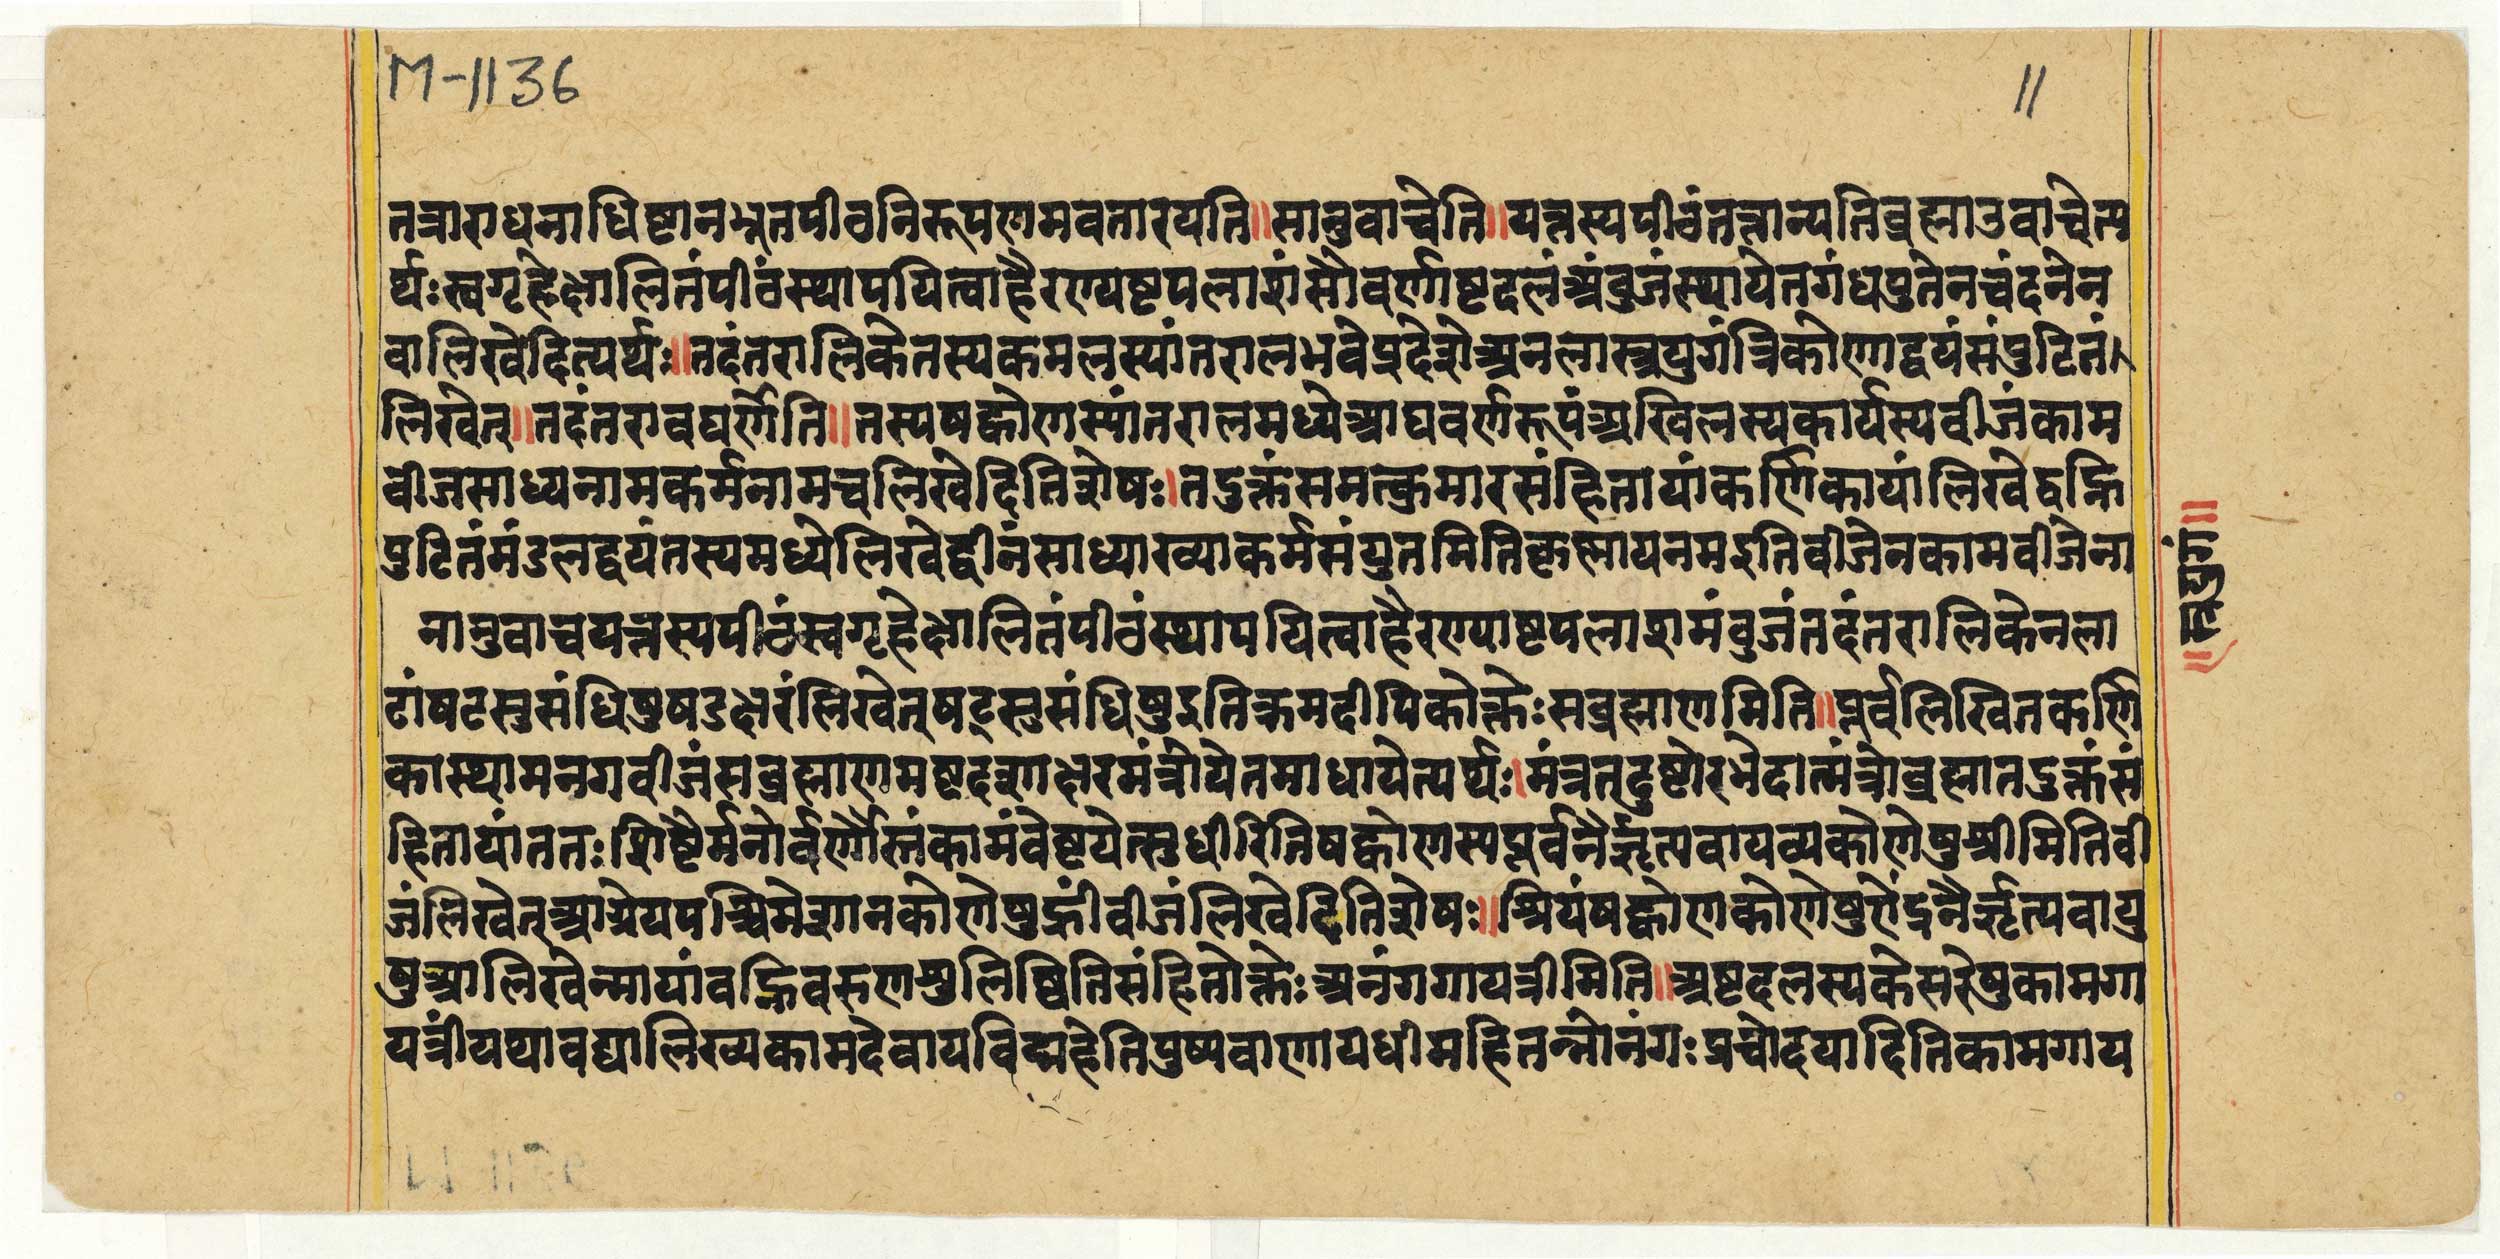 M-1136
11
तत्राराधनाधिष्टानभूतपीठनिरूपणमवतारयति॥सानुवाचेति॥यत्नस्यपीठंतत्रान्यतिब्रह्माउवाचेत्य
र्थःस्वगृहेक्षालितंपीठंस्थापयित्वाहैरण्यष्टपलाशंसौवर्णाष्टदलंअंबुजंस्थापयेतगंधपुतेनचंदनेन
वालिखेदित्यर्थः॥तदंतरालिकेतस्यकमलस्यांतरालभवेप्रदेशेअनलास्त्रयुगंत्रिकोणद्वयंसंपुटितं।
लिखेत्॥तदंतरावद्यर्णेति॥तस्यषट्कोणस्यांतरालमध्येआद्यवर्णरूपंअखिलस्यकार्यस्यबीजंकाम
बीजसाध्यनामकर्मनामचलिखेदितिशेषः।तदुक्तंसमत्क्रमारसंहितायांकर्णिकायांलिखेद्वह्नि
पुटितंमंडलद्वयंतस्यमध्येलिखेद्बीजंसाध्याख्याकर्मसंयुतमितिकृष्णायनमइतिबीजेनकामबीजेना
तानुवाचयत्नस्यपीठंस्वगृहेक्षालितंपीठंस्थापयित्वाहैरण्याष्टपलाशमंबुजंतदंतरालिकेनला
टांषटसुसंधिषुषडक्षरंलिखेत्षट्सुसंधिषुइतिक्रमदीपिकोक्तेःसब्रह्माणमिति॥पूर्वलिखितकर्णि
कास्थामनगबीजंसब्रह्माणमष्टदशाक्षरमंत्रोयेतमाधायेत्यर्थः।मंत्रतद्रुष्टोरभेदात्मंत्रोब्रह्मातदुक्तंसं
हितायांततःशिष्टैर्मनोर्वर्णैस्तंकामंवेष्टयेत्सुधीरितिषट्कोणस्यपूर्वनैर्ऋत्यवायव्यकोणेषुश्रीमितिबी
जंलिखेत्आग्नेयपश्चिमेशानकोणेषुह्रींबीजंलिखेदितिशेषः॥श्रियंषट्कोणकोणेषुऐंद्रनैर्ऋत्यवायु
षुआलिखेन्मायांवह्निवरुणशुलिष्वितिसंहितोक्तेःअनंगगायत्रीमिति॥अष्टदलस्यकेसरेषुकामगा
यत्रींयथावद्यालिख्यकामदेवायविद्महेतिपुष्पबाणायधीमहितन्नोनंगःप्रचोदयादितिकामगाय